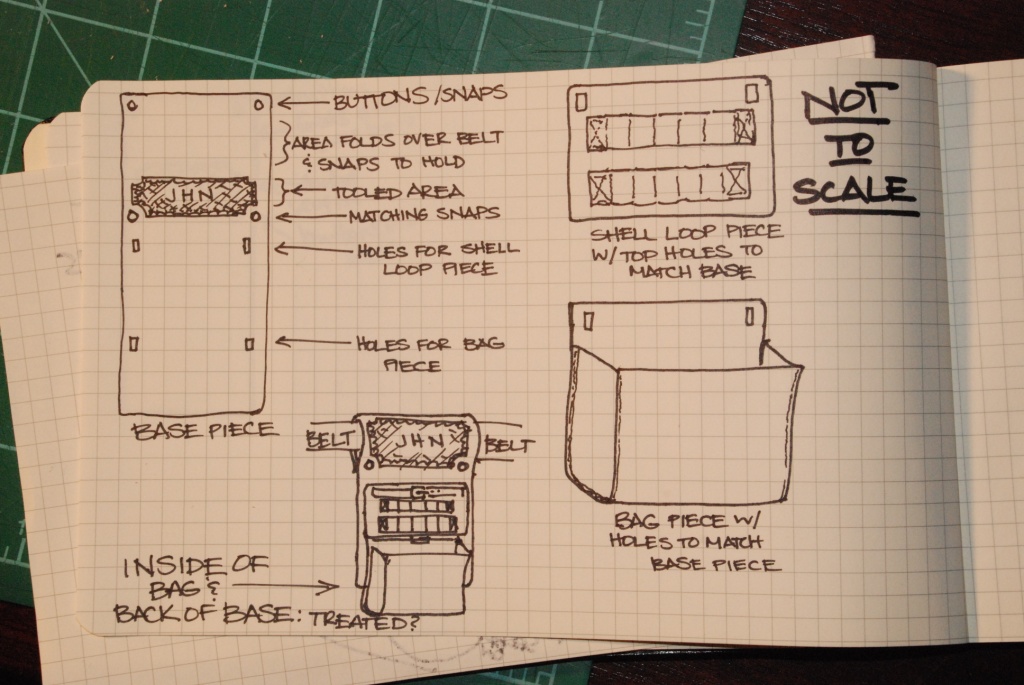 BUTTONS/SNAPS
AREA FOLDS OVER BELT
& SNAPS TO HOLD
JHN
TOOLED AREA
MATCHING SNAPS
HOLES FOR SHELL
LOOP PIECE
HOLES FOR BAG
PIECE
BASE PIECE
SHELL LOOP PIECE
W/TOP HOLES TO
MATCH BASE
NOT
TO
SCALE
BELT
JHN
BELT
BAG PIECE W/
HOLES TO MATCH
BASE PIECE
INSIDE OF
BAG &
BACK OF BASE: TREATED?